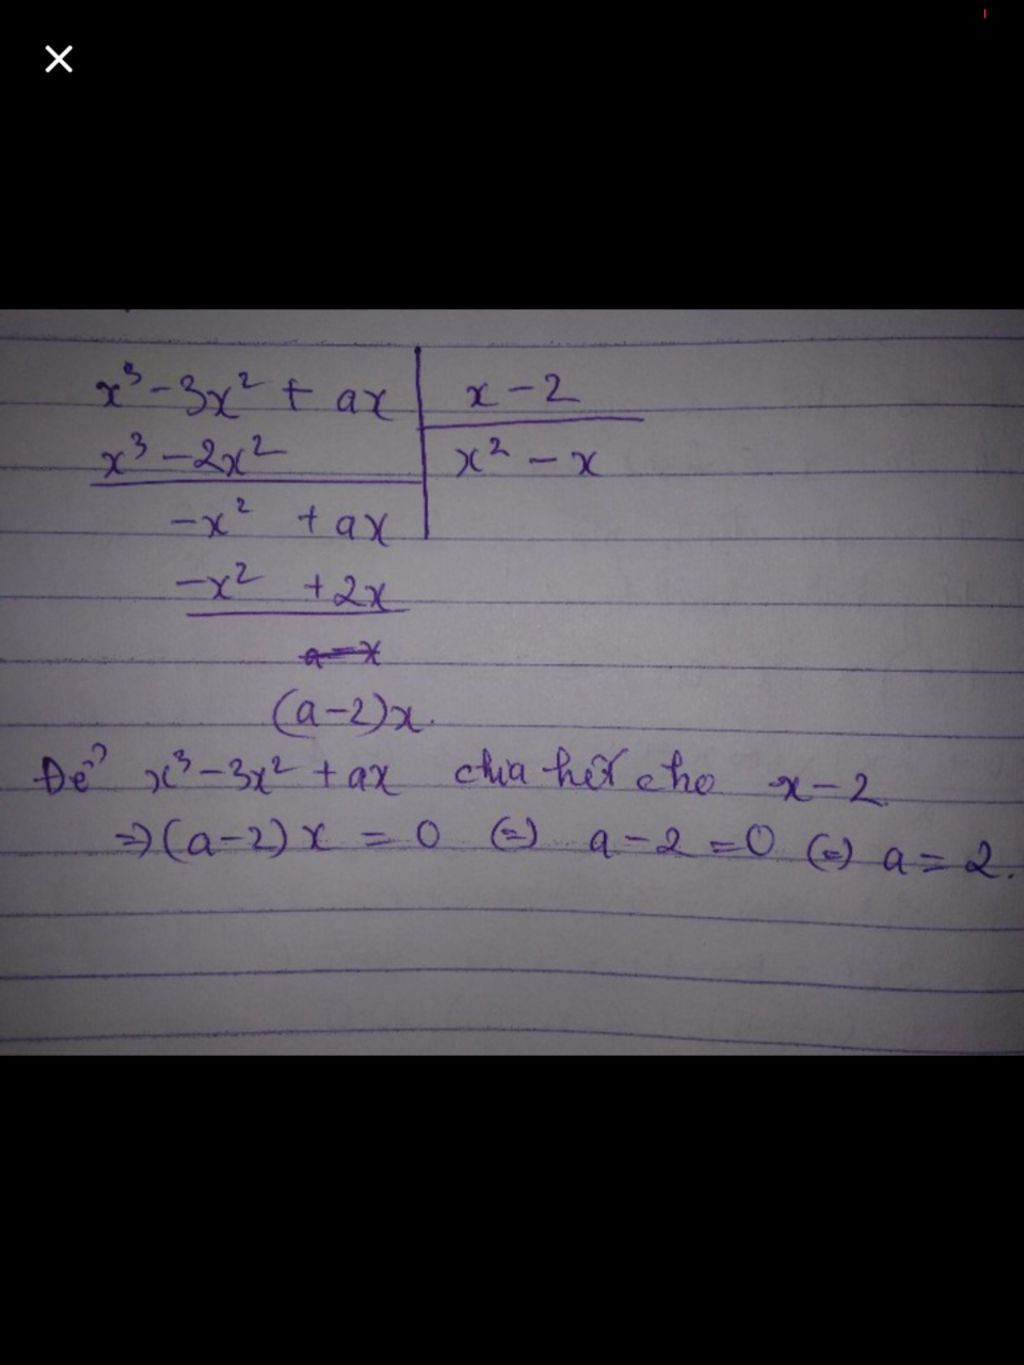 x³ - 3x² + ax | x - 2
x³ - 2x² | x² - x
-x² + ax
-x² + 2x
(a-2)x.
Để x³ - 3x² + ax chia hết cho x - 2
=> (a-2) x = 0 (=) a - 2 = 0 (=) a = 2.